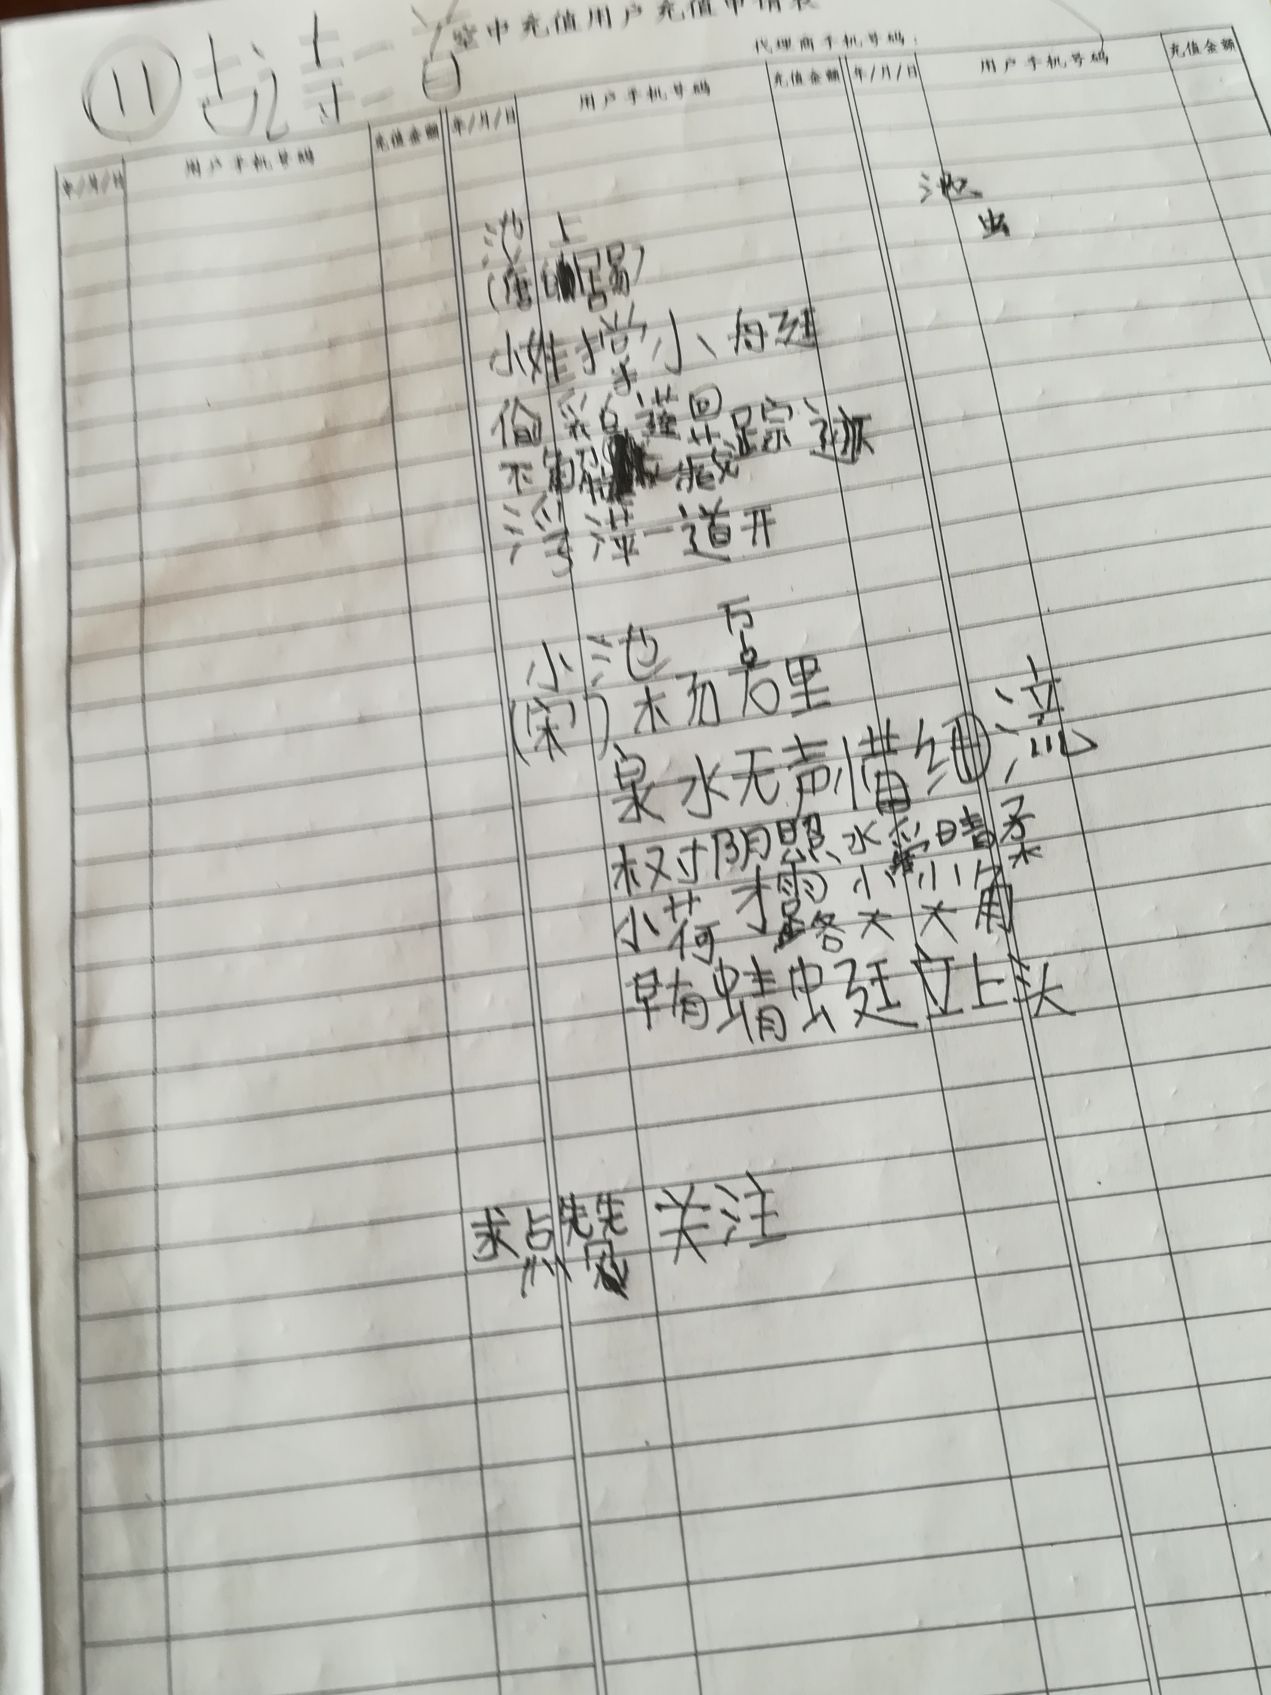 空中充值用户充值申请表
代理商手机号码：
⑪ 古诗二首
年/月/日 用户手机号码 充值金额 年/月/日 用户手机号码 充值金额 年/月/日 用户手机号码 充值金额
池上
(唐 居易)
小娃撑小舟廷
偷采白莲回
不解藏踪迹
浮萍一道开
小池
(宋) 杨万里
泉水无声惜细流
树阴照水爱晴柔
小荷才露尖尖角
早有蜻蜓立上头
求点赞 关注